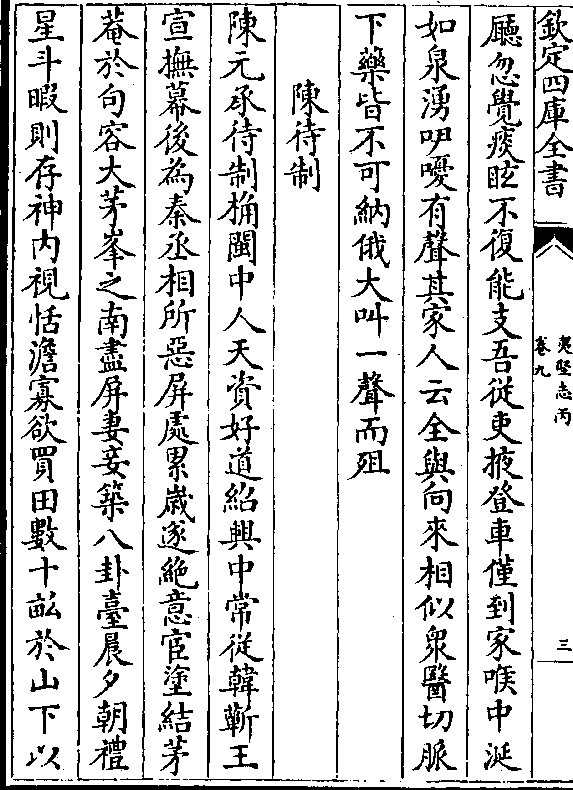 欽定四庫全書
夷堅志丙
卷九
三
廳忽覺痰眩不復能支吾從吏掖登車僅到家喉中涎
如泉湧呀嚘有聲其家人云全與向來相似衆醫切脈
下藥皆不可納俄大叫一聲而殂
陳待制
陳元承待制桷閩中人天資好道紹興中常從韓蘄王
宣撫幕後為秦丞相所惡屏處累歲遂絶意宦塗結茅
菴於句容大茅峯之南盡屏妻妾築八卦臺晨夕朝禮
星斗暇則存神内視恬澹寡欲買田數十畝於山下以